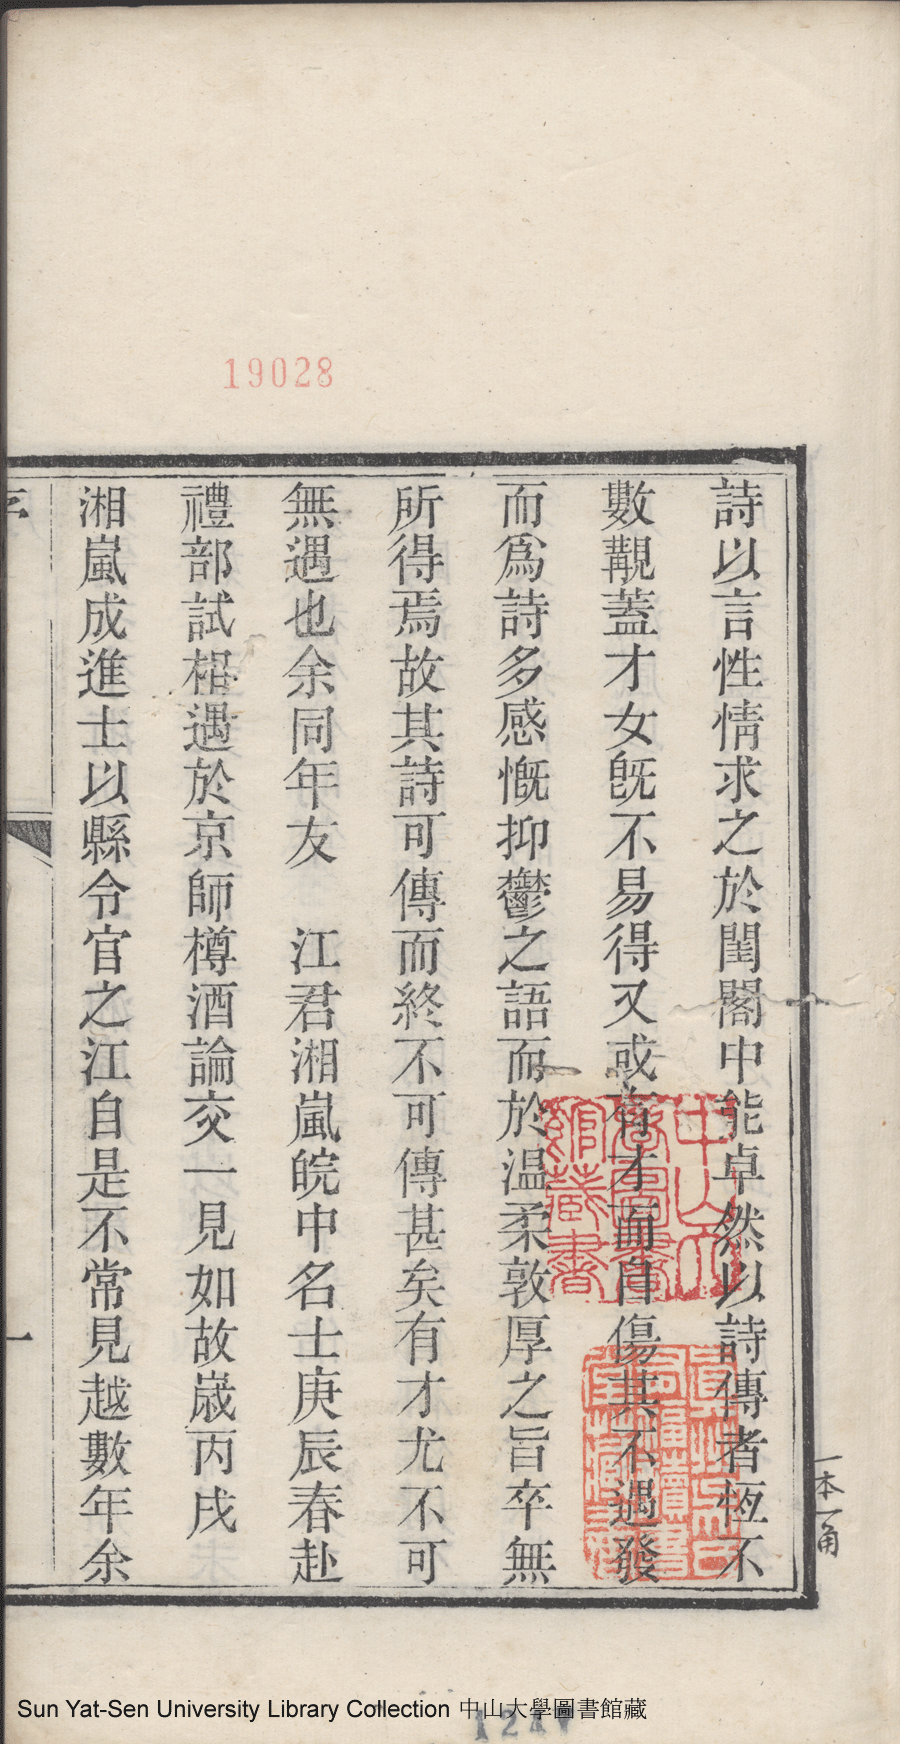 19028
詩以言性情求之於閨閣中能卓然以詩傳者恆不
數覯蓋才女旣不易得又或有才而自傷其不遇發
而爲詩多感慨抑鬱之語而於温柔敦厚之旨卒無
所得焉故其詩可傳而終不可傳甚矣有才尤不可
無遇也余同年友　江君湘嵐皖中名士庚辰春赴
禮部試相遇於京師樽酒論交一見如故嵗丙戌
湘嵐成進士以縣令官之江自是不常見越數年余
序
一
一本一角
中山大學圖書館藏書
Sun Yat-Sen University Library Collection 中山大學圖書館藏